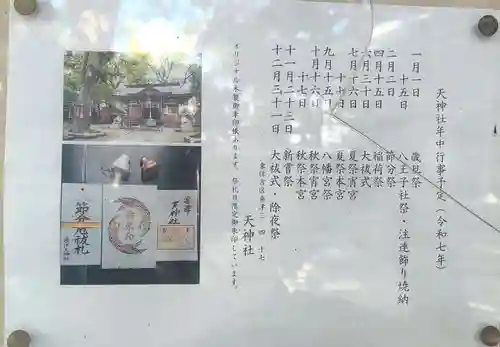 天神社年中行事予定(令和七年)
一月一日 歳旦祭
十五日 八王子社祭・注連飾り焼納
二月二日 節分祭
四月十五日 稲荷祭
六月三十日 大祓式
七月十六日 夏祭宵宮
十七日 夏祭本宮
九月十五日 八幡宮祭
十月十六日 秋祭宵宮
十七日 秋祭本宮
十一月二十三日 新嘗祭
十二月三十一日 大祓式・除夜祭
東住吉区桑津三 四 十七
天神社
オリジナル 木製御朱印帳があります。祭礼日限定御朱印しています。
桑津
天神社
節分厄祓札